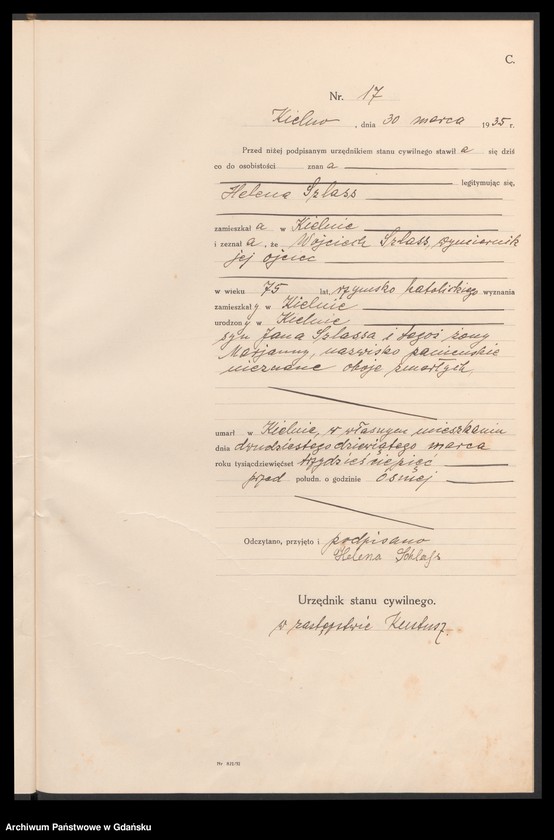 C.
Nr. 17
Kielno, dnia 30 marca 1935 r.
Przed niżej podpisanym urzędnikiem stanu cywilnego stawił a się dziś
co do osobistości znan a
legitymując się,
Helena Szlass
zamieszkał a w Kielnie
i zeznał a, że Wojciech Szlass, wymiernik
jej ojciec
w wieku 75 lat, rzymsko katolickiego wyznania
zamieszkały w Kielnie
urodzony w Kielnie
syn Jana Szlassa i tegoż żony
Marjanny, nazwisko panieńskie
nieznane oboje zmarłych,
umarł w Kielnie, w własnym mieszkaniu
dnia dwudziestego dziewiątego marca
roku tysiącdziewięćset trzydzieści pięć
przed połudn. o godzinie ósmej
Odczytano, przyjęto i podpisano
Helena Schlass
Urzędnik stanu cywilnego.
w zastępstwie
Archiwum Państwowe w Gdańsku